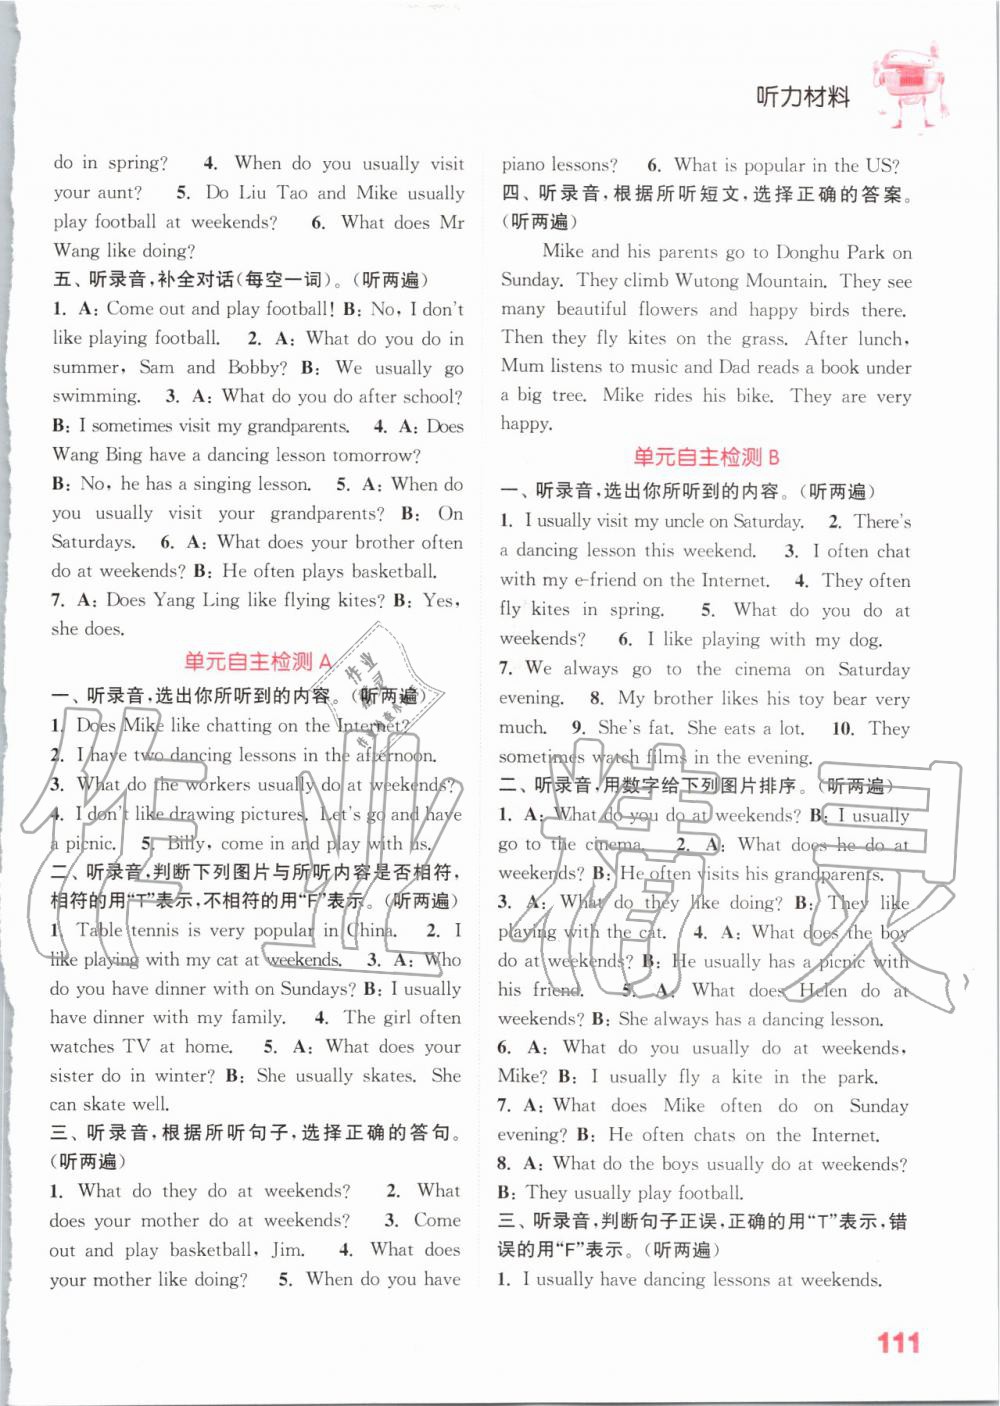 听力材料
do in spring? 4. When do you usually visit
your aunt? 5. Do Liu Tao and Mike usually
play football at weekends? 6. What does Mr
Wang like doing?
五、听录音,补全对话(每空一词)。(听两遍)
1. A: Come out and play football! B: No, I don't
like playing football. 2. A: What do you do in
summer, Sam and Bobby? B: We usually go
swimming. 3. A: What do you do after school?
B: I sometimes visit my grandparents. 4. A: Does
Wang Bing have a dancing lesson tomorrow?
B: No, he has a singing lesson. 5. A: When do
you usually visit your grandparents? B: On
Saturdays. 6. A: What does your brother often
do at weekends? B: He often plays basketball.
7. A: Does Yang Ling like flying kites? B: Yes,
she does.
单元自主检测 A
一、听录音,选出你所听到的内容。(听两遍)
1. Does Mike like chatting on the Internet?
2. I have two dancing lessons in the afternoon.
3. What do the workers usually do at weekends?
4. I don't like drawing pictures. Let's go and have
a picnic. 5. Billy, come in and play with us.
二、听录音,判断下列图片与所听内容是否相符,
相符的用“T”表示,不相符的用“F”表示。(听两遍)
1. Table tennis is very popular in China. 2. I
like playing with my cat at weekends. 3. A: Who
do you have dinner with on Sundays? B: I usually
have dinner with my family. 4. The girl often
watches TV at home. 5. A: What does your
sister do in winter? B: She usually skates. She
can skate well.
三、听录音,根据所听句子,选择正确的答句。
(听两遍)
1. What do they do at weekends? 2. What
does your mother do at weekends? 3. Come
out and play basketball, Jim. 4. What does
your mother like doing? 5. When do you have
piano lessons? 6. What is popular in the US?
四、听录音,根据所听短文,选择正确的答案。
(听两遍)
Mike and his parents go to Donghu Park on
Sunday. They climb Wutong Mountain. They see
many beautiful flowers and happy birds there.
Then they fly kites on the grass. After lunch,
Mum listens to music and Dad reads a book under
a big tree. Mike rides his bike. They are very
happy.
单元自主检测 B
一、听录音,选出你所听到的内容。(听两遍)
1. I usually visit my uncle on Saturday. 2. There's
a dancing lesson this weekend. 3. I often chat
with my e-friend on the Internet. 4. They often
fly kites in spring. 5. What do you do at
weekends? 6. I like playing with my dog.
7. We always go to the cinema on Saturday
evening. 8. My brother likes his toy bear very
much. 9. She's fat. She eats a lot. 10. They
sometimes watch films in the evening.
二、听录音,用数字给下列图片排序。(听两遍)
1. A: What do you do at weekends? B: I usually
go to the cinema. 2. A: What does he do at
weekends? B: He often visits his grandparents.
3. A: What do they like doing? B: They like
playing with the cat. 4. A: What does the boy
do at weekends? B: He usually has a picnic with
his friend. 5. A: What does Helen do at
weekends? B: She always has a dancing lesson.
6. A: What do you usually do at weekends,
Mike? B: I usually fly a kite in the park.
7. A: What does Mike often do on Sunday
evening? B: He often chats on the Internet.
8. A: What do the boys usually do at weekends?
B: They usually play football.
三、听录音,判断句子正误,正确的用“T”表示,错
误的用“F”表示。(听两遍)
1. I usually have dancing lessons at weekends.
111
作业精灵